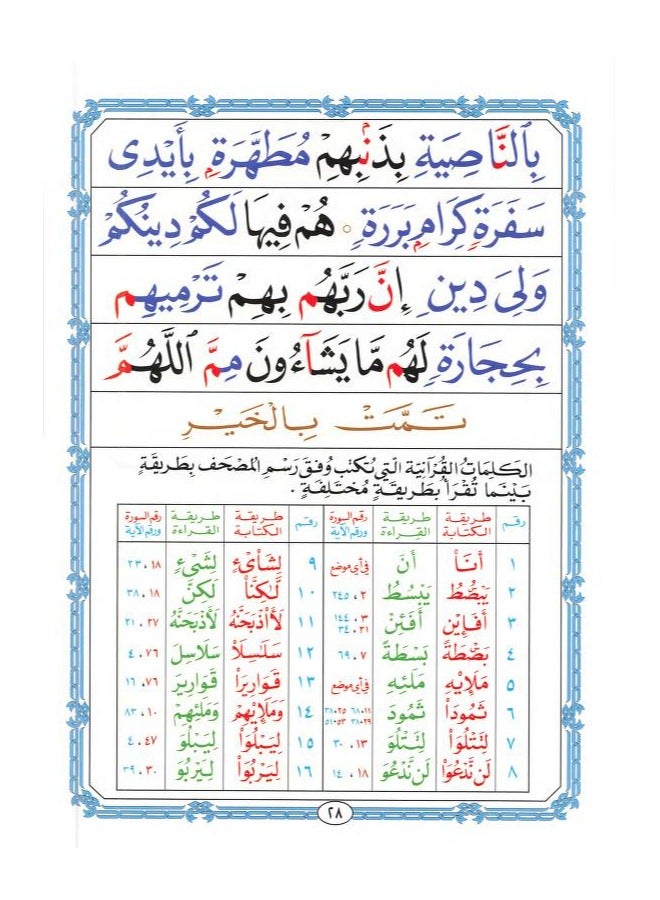 بِٱلنَّاصِيَةِ بِذَنۢبِهِمْ مُطَهَّرَةٍۭ بِأَيْدِى
سَفَرَةٍ كِرَامٍۭ بَرَرَةٍ ۝ هُمْ فِيهَا لَكُمْ دِينُكُمْ
وَلِىَ دِينِ إِنَّ رَبَّهُم بِهِمْ تَرْمِيهِم
بِحِجَارَةٍ لَهُم مَّا يَشَآءُونَ مِمَّ ٱللَّهُمَّ
تَمَّتْ بِالْخَيْرِ
الكَلِمَاتُ القُرْآنِيَّة الَّتِي تُكتَب وُفقَ رَسْمِ المُصْحَف بِطَرِيقَةٍ
بَيْنَمَا تُقْرَأُ بِطَرِيقَةٍ مُخْتَلِفَةٍ .
رقم طريقة الكتابة طريقة القراءة رقم السورة ورقم الآية رقم طريقة الكتابة طريقة القراءة رقم السورة ورقم الآية
١ أَنَا۠ أَنَ في أي موضع ٩ لِشَا۟ىْءٍ لِشَىْءٍ ١٨، ٢٣
٢ يَبْصُۜطُ يَبْسُطُ ٢، ٢٤٥ ١٠ لَّٰكِنَّا۠ لَٰكِنَّ ١٨، ٣٨
٣ أَفَإِيْن أَفَئِنْ ٣، ١٤٤ ٢١، ٣٤ ١١ لَأَا۟ذْبَحَنَّهُ لَأَذْبَحَنَّهُ ٢٧، ٢١
٤ بَصْۜطَةً بَسْطَةً ٧، ٦٩ ١٢ سَلَٰسِلَا۟ سَلَاسِلَ ٧٦، ٤
٥ مَلَإِيْهِ مَلَئِهِ في أي موضع ١٣ قَوَارِيرَا۟ قَوَارِيرَ ٧٦، ١٦
٦ ثَمُودَا۟ ثَمُودَ ١١، ٦٨ ٢٥، ٣٨ ٢٩، ٣٨ ٥٣، ٥١ ١٤ وَمَلَإِيْهِمْ وَمَلَئِهِمْ ١٠، ٨٣
٧ لِتَتْلُوَا۟ لِتَتْلُوَ ١٣، ٣٠ ١٥ لِيَبْلُوَا۟ لِيَبْلُوَ ٤٧، ٤
٨ لَن نَّدْعُوَا۟ لَن نَّدْعُوَ ١٨، ١٤ ١٦ لِيَرْبُوَا۟ لِيَرْبُوَ ٣٠، ٣٩
٢٨